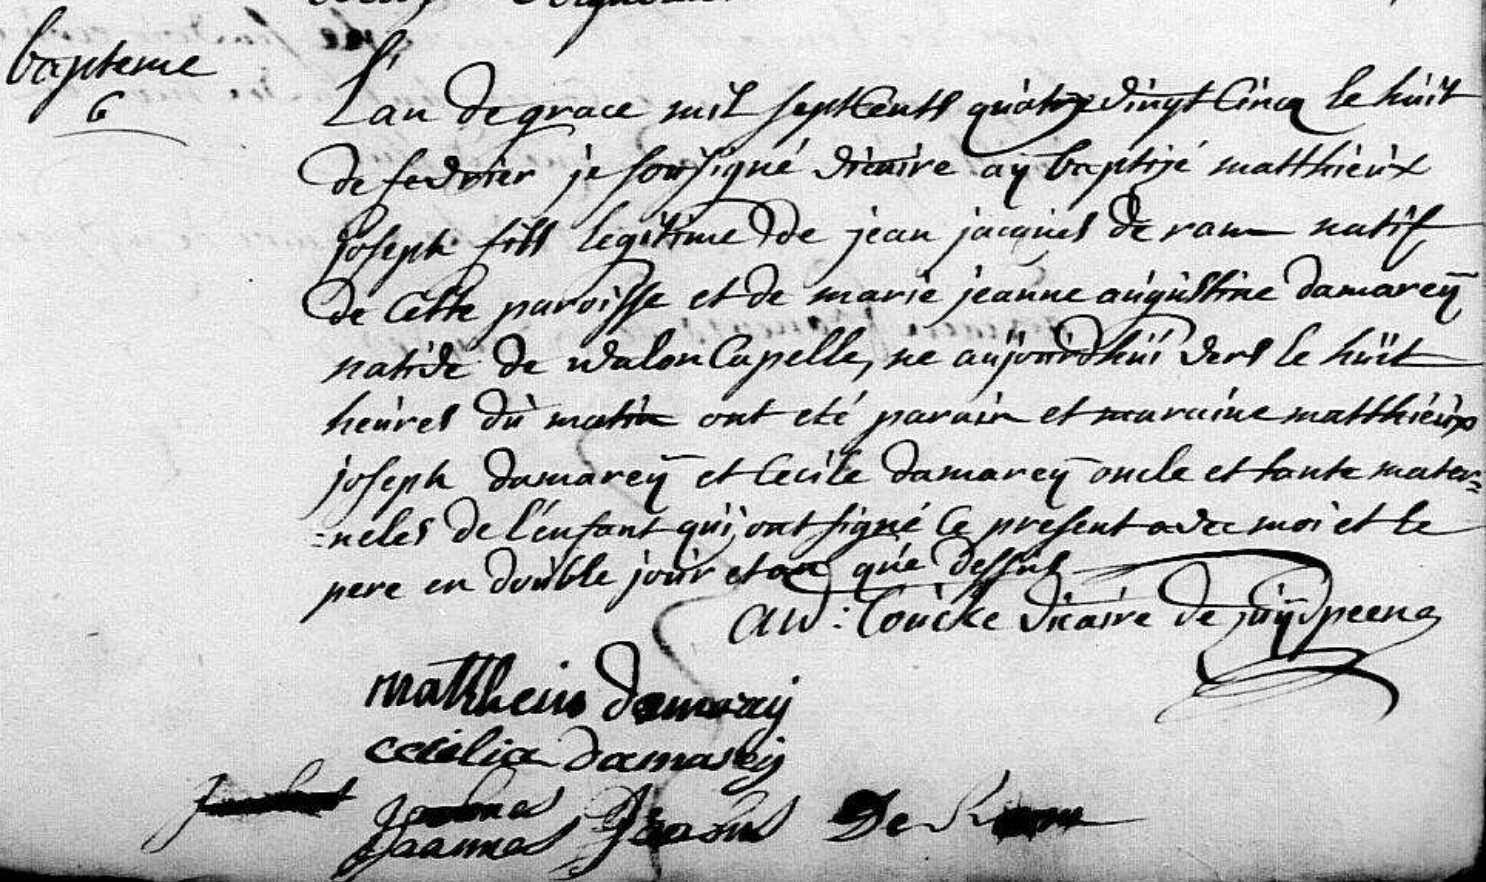 bapteme
6
L'an de grace mil sept Cents quatre vingt Cinq le huit
de fevrier je sousigné vicaire ay baptizé matthieux
joseph fils legitime de jean jacques de ram natif
de Cette paroisse et de marie jeanne augustine damareÿ
native de walon Capelle, ne aujourdhui vers le huit
heures du matin ont eté parain et maraine matthieux
joseph damareÿ et Cecile damareÿ oncle et tante mater=
=neles de l'enfant qui ont signé Ce present avec moi et le
pere en double jour et an que dessus
AW: Coucke vicaire de zuÿdpeene
mattheius damareij
cecilia damareij
Joannes Jacobus De Ram